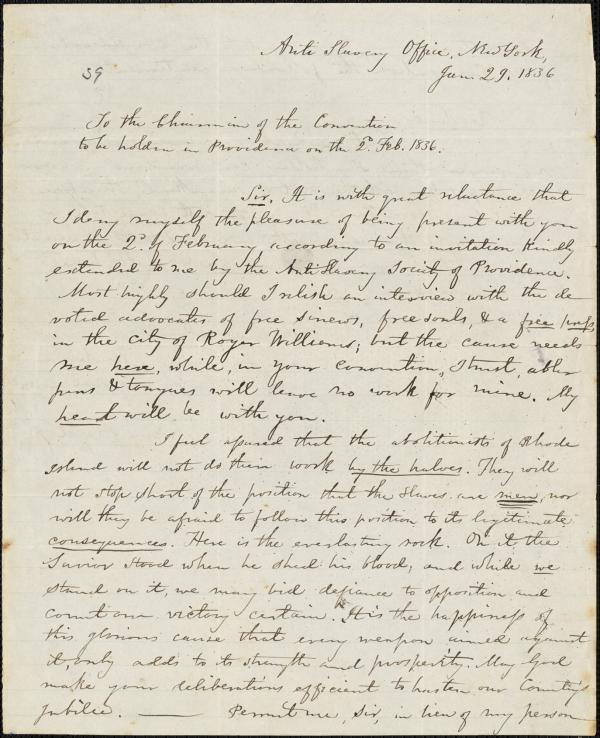 Anti Slavery Office, New York,
Jan. 29. 1836
39
To the Chairman of the Convention
to be holden in Providence on the 2d. Feb. 1836.
Sir, It is with great reluctance that
I deny myself the pleasure of being present with you
on the 2d of February according to an invitation kindly
extended to me by the Anti Slavery Society of Providence.
Most highly should I relish an interview with the de
voted advocates of free sinews, free souls, & a free press
in the city of Roger Williams; but the cause needs
me here, while, in your convention, I trust, abler
pens & tongues will leave no work for mine. My
heart will be with you.
I feel assured that the abolitionists of Rhode
Island will not do their work by the halves. They will
not stop short of the position that the slaves are men, nor
will they be afraid to follow this position to its legitimate
consequences. Here is the everlasting rock. On it, the
Savior stood when he shed his blood, and while we
stand on it, we may bid defiance to opposition and
count our victory certain. It is the happiness of
this glorious cause that every weapon aimed against
it, only adds to its strength and prosperity. May God
make your deliberations efficient to hasten our Country's
Jubilee. — Permit me, Sir, in lieu of my person